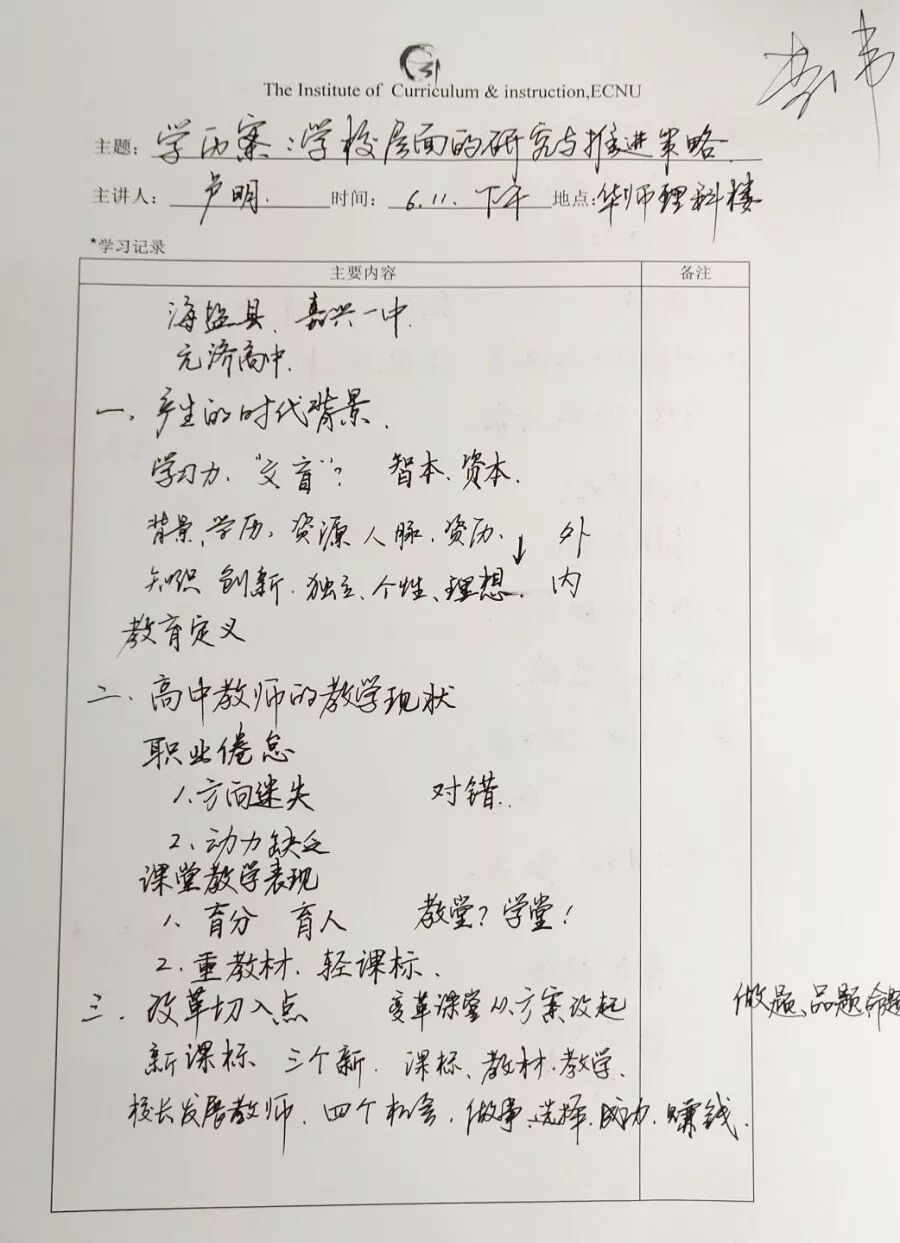 The Institute of Curriculum & instruction,ECNU
主题: 学历案:学校层面的研究与推进策略.
主讲人: 卢明. 时间: 6.11. 下午 地点: 华师理科楼
*学习记录
主要内容 备注
海盐县. 嘉兴一中.
元济高中.
一、产生的时代背景.
学习力. “文盲”? 智本. 资本.
背景、学历, 资源 人脉. 资历. ↓ 外
知识 创新. 独立、个性、理想. 内
教育定义
二. 高中教师的教学现状
职业倦怠
1、方向迷失 对错.
2、动力缺乏
课堂教学表现
1、育分 育人 教堂?学堂!
2.重教材. 轻课标.
三. 改革切入点 变革课堂从方案改起 做题、品题命题
新课标 三个新. 课标、教材.教学.
校长发展教师. 四个机会. 做事、选择.成功. 赚钱.